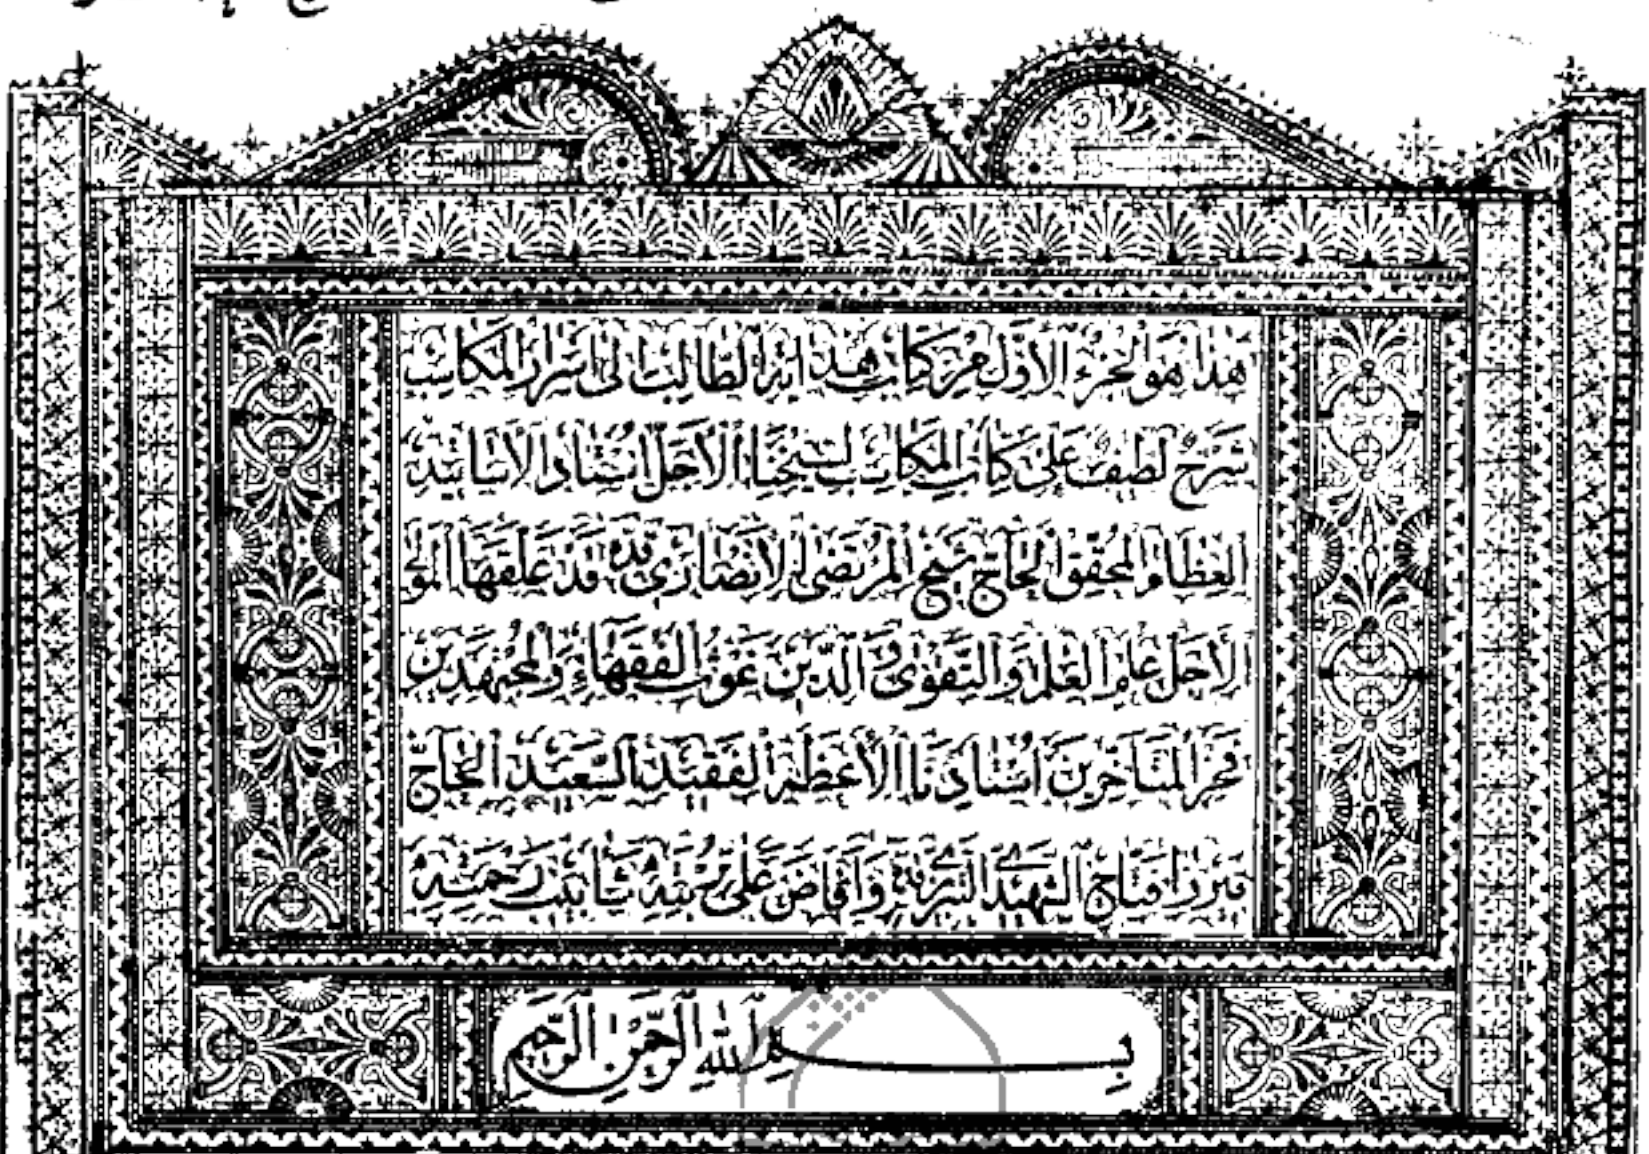 هذا هو الجزء الأول من كتاب هداية الطالب إلى أسرار المكاسب
شرح لطيف على كتاب المكاسب لشيخنا الأجل أستاد الأساتيد
العظام المحقق الحاج شيخ المرتضى الأنصاري قده قد علقها المولى
الأجل علم العلم والتقوى والدين غوث الفقهاء والمجتهدين
فخر المتأخرين أستادنا الأعظم الفقيد السعيد الحاج
ميرزا فتاح الشهيدي التبريزي وأفاض على تربته شآبيب رحمته
بسم الله الرحمن الرحيم